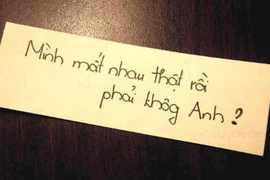 Mình mất nhau thật rồi
phải khôg Anh ?